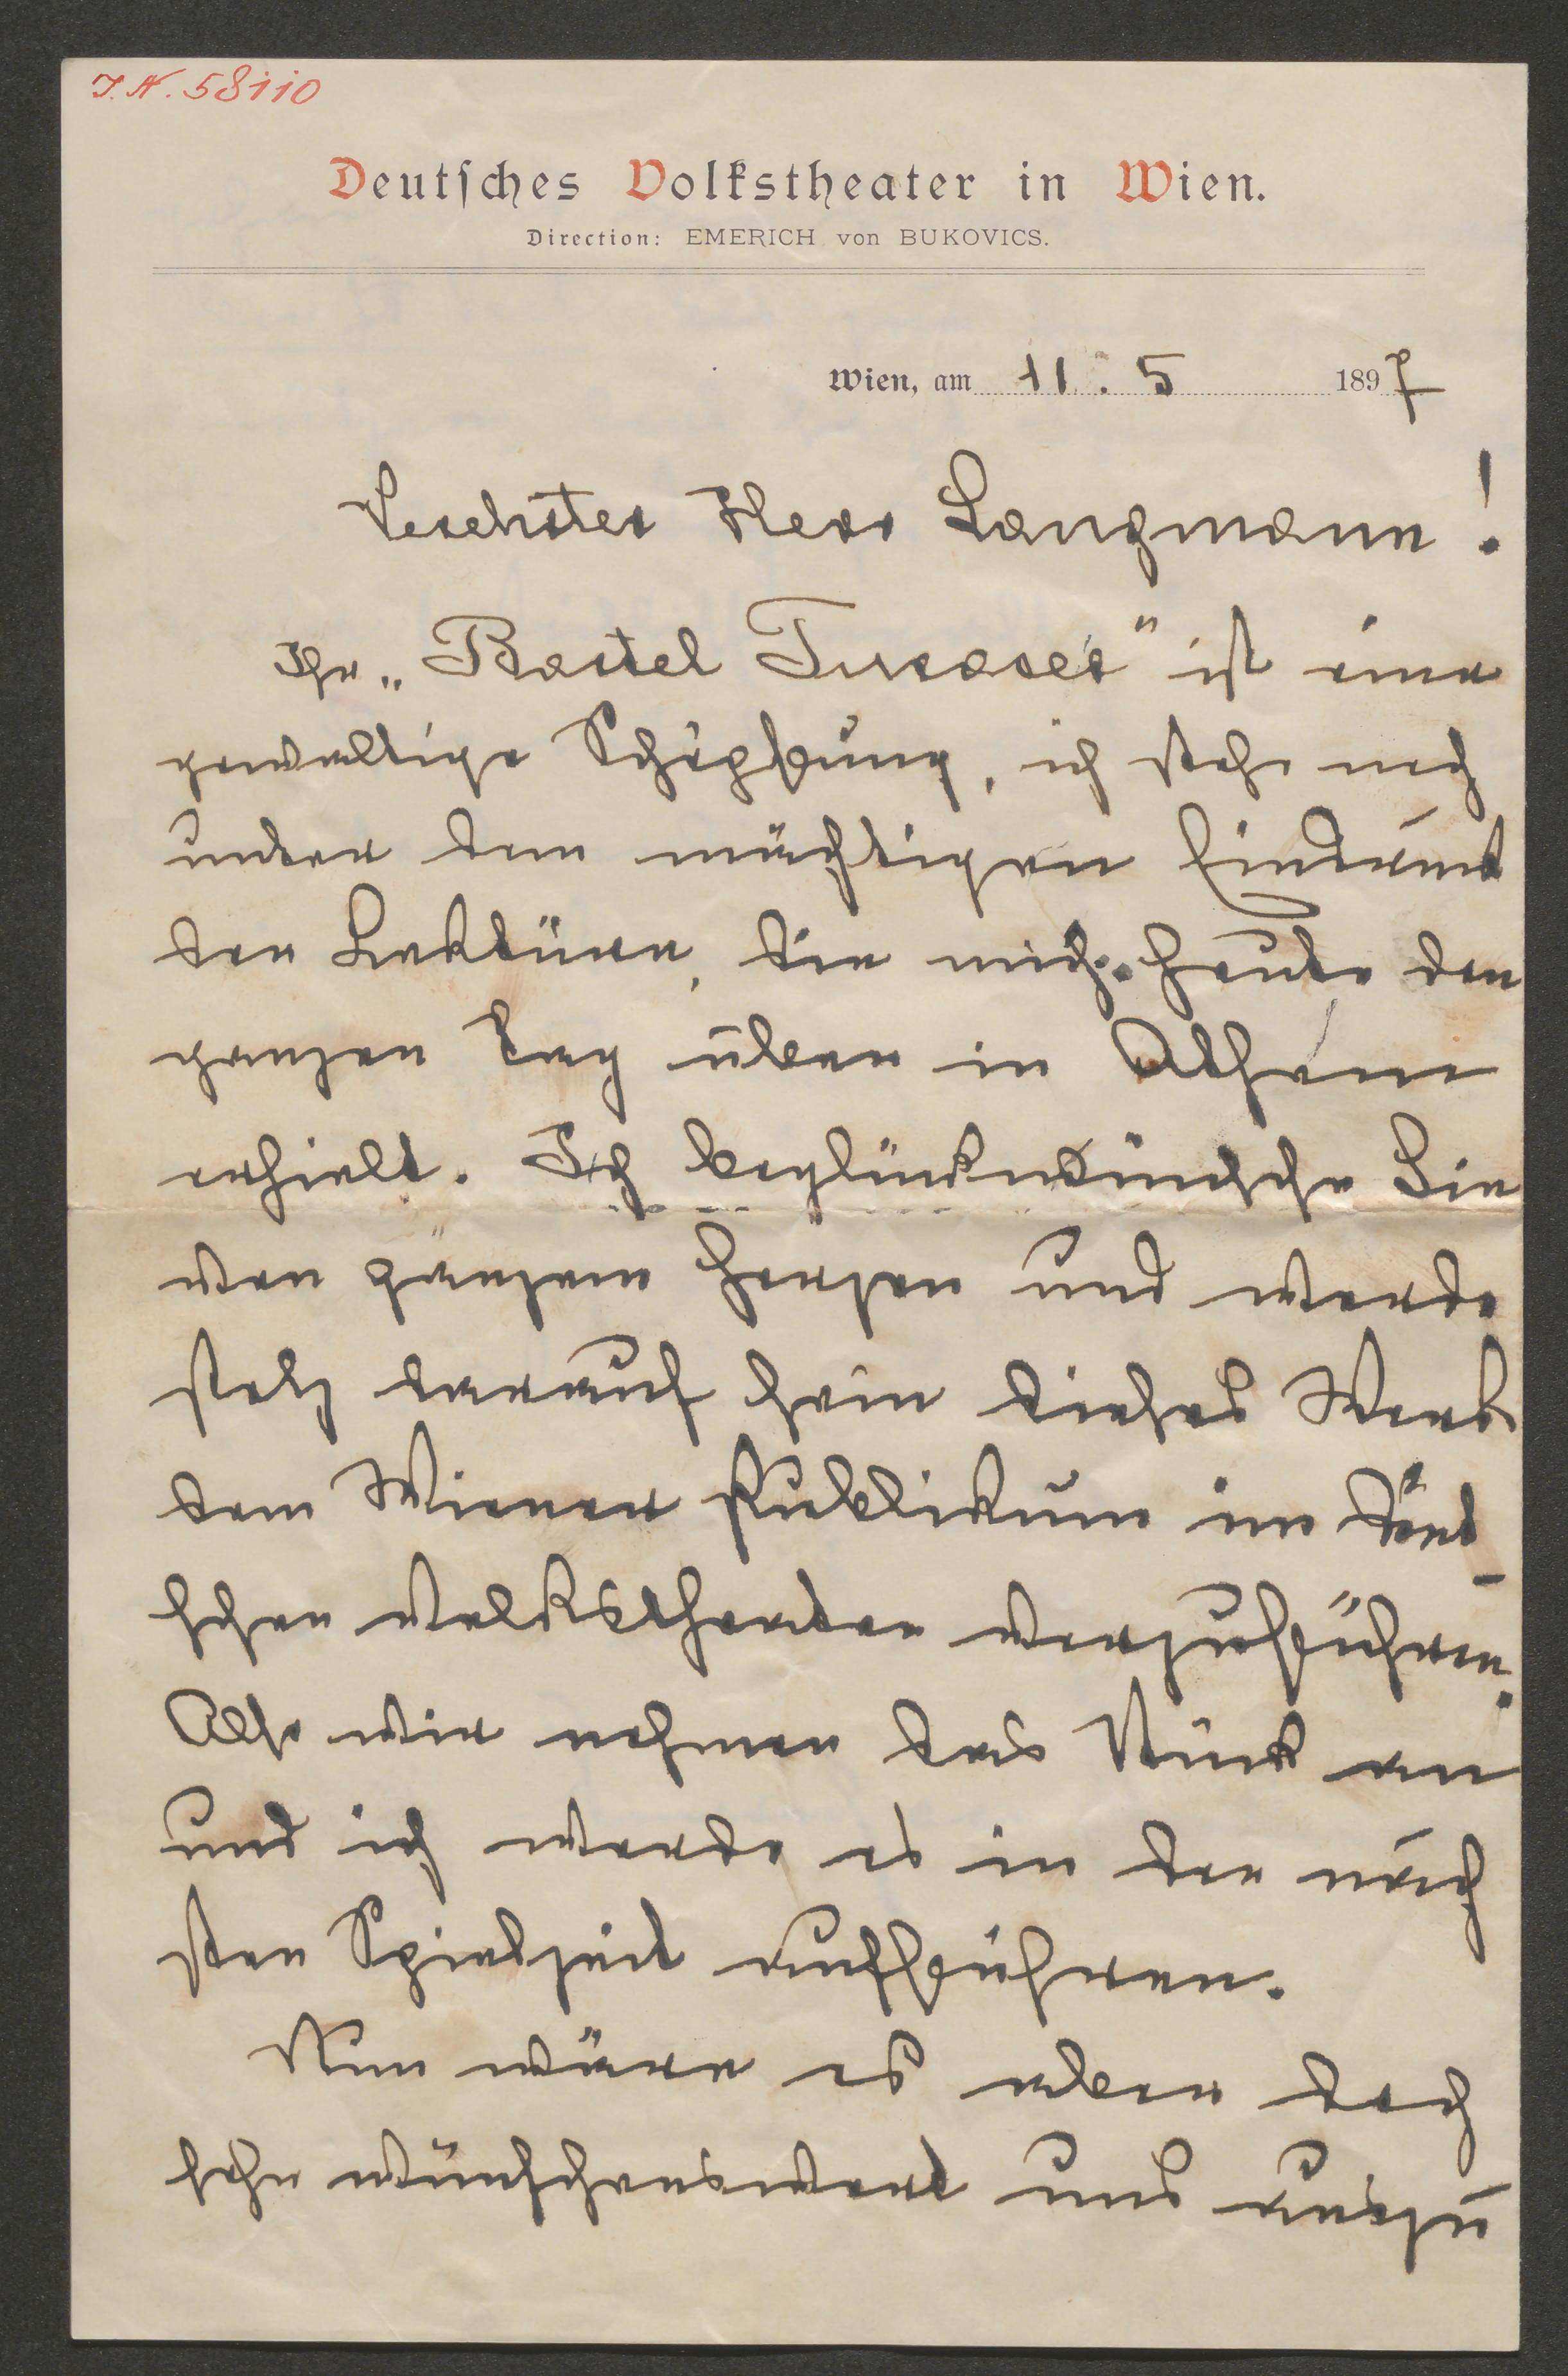 I. N. 58110
Deutsches Volkstheater in Wien.
Direction: EMERICH von BUKOVICS.
Wien, am 11. 5 1897
Verehrter Herr Langmann!
Ihr „Bartel Turaser" ist eine
gewaltige Schöpfung, ich stehe noch
unter dem mächtigen Eindruck
der Lektüre, die mich heute den
ganzen Tag über in Athem
erhielt. Ich beglückwünsche Sie
von ganzem Herzen und werde
stolz darauf sein dieses Werk
dem Wiener Publikum im deut-
schen Volkstheater vorzuführen.
Also wir nehmen das Stück an
und ich werde es in der näch
sten Spielzeit aufführen.
Nun wäre es aber doch
sehr wünschenswert uns auszu